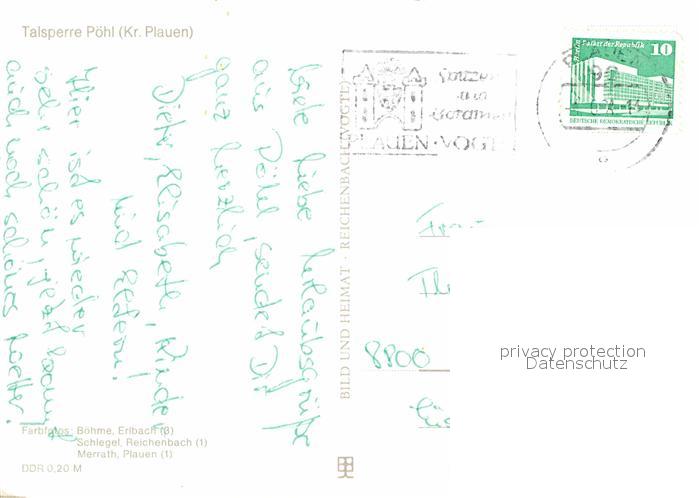 Talsperre Pöhl (Kr. Plauen)
Viele liebe Urlaubsgrüße
aus Pöhl sendet Dir
ganz herzlich
Dieter, Elisabeth, Kinder
und Eltern.
Hier ist es wieder
sehr schön, jetzt kommt
auch noch schönes Wetter.
Farbfotos: Böhme, Erlbach (3)
Schlegel, Reichenbach (1)
Merrath, Plauen (1)
DDR 0,20 M
BILD UND HEIMAT · REICHENBACH (VOGTL)
Spitzen
und
Gardinen
PLAUEN · VOGTL
PLAUEN
99
Berlin Palast der Republik
10
DEUTSCHE DEMOKRATISCHE REPUBLIK
8800
privacy protection
Datenschutz